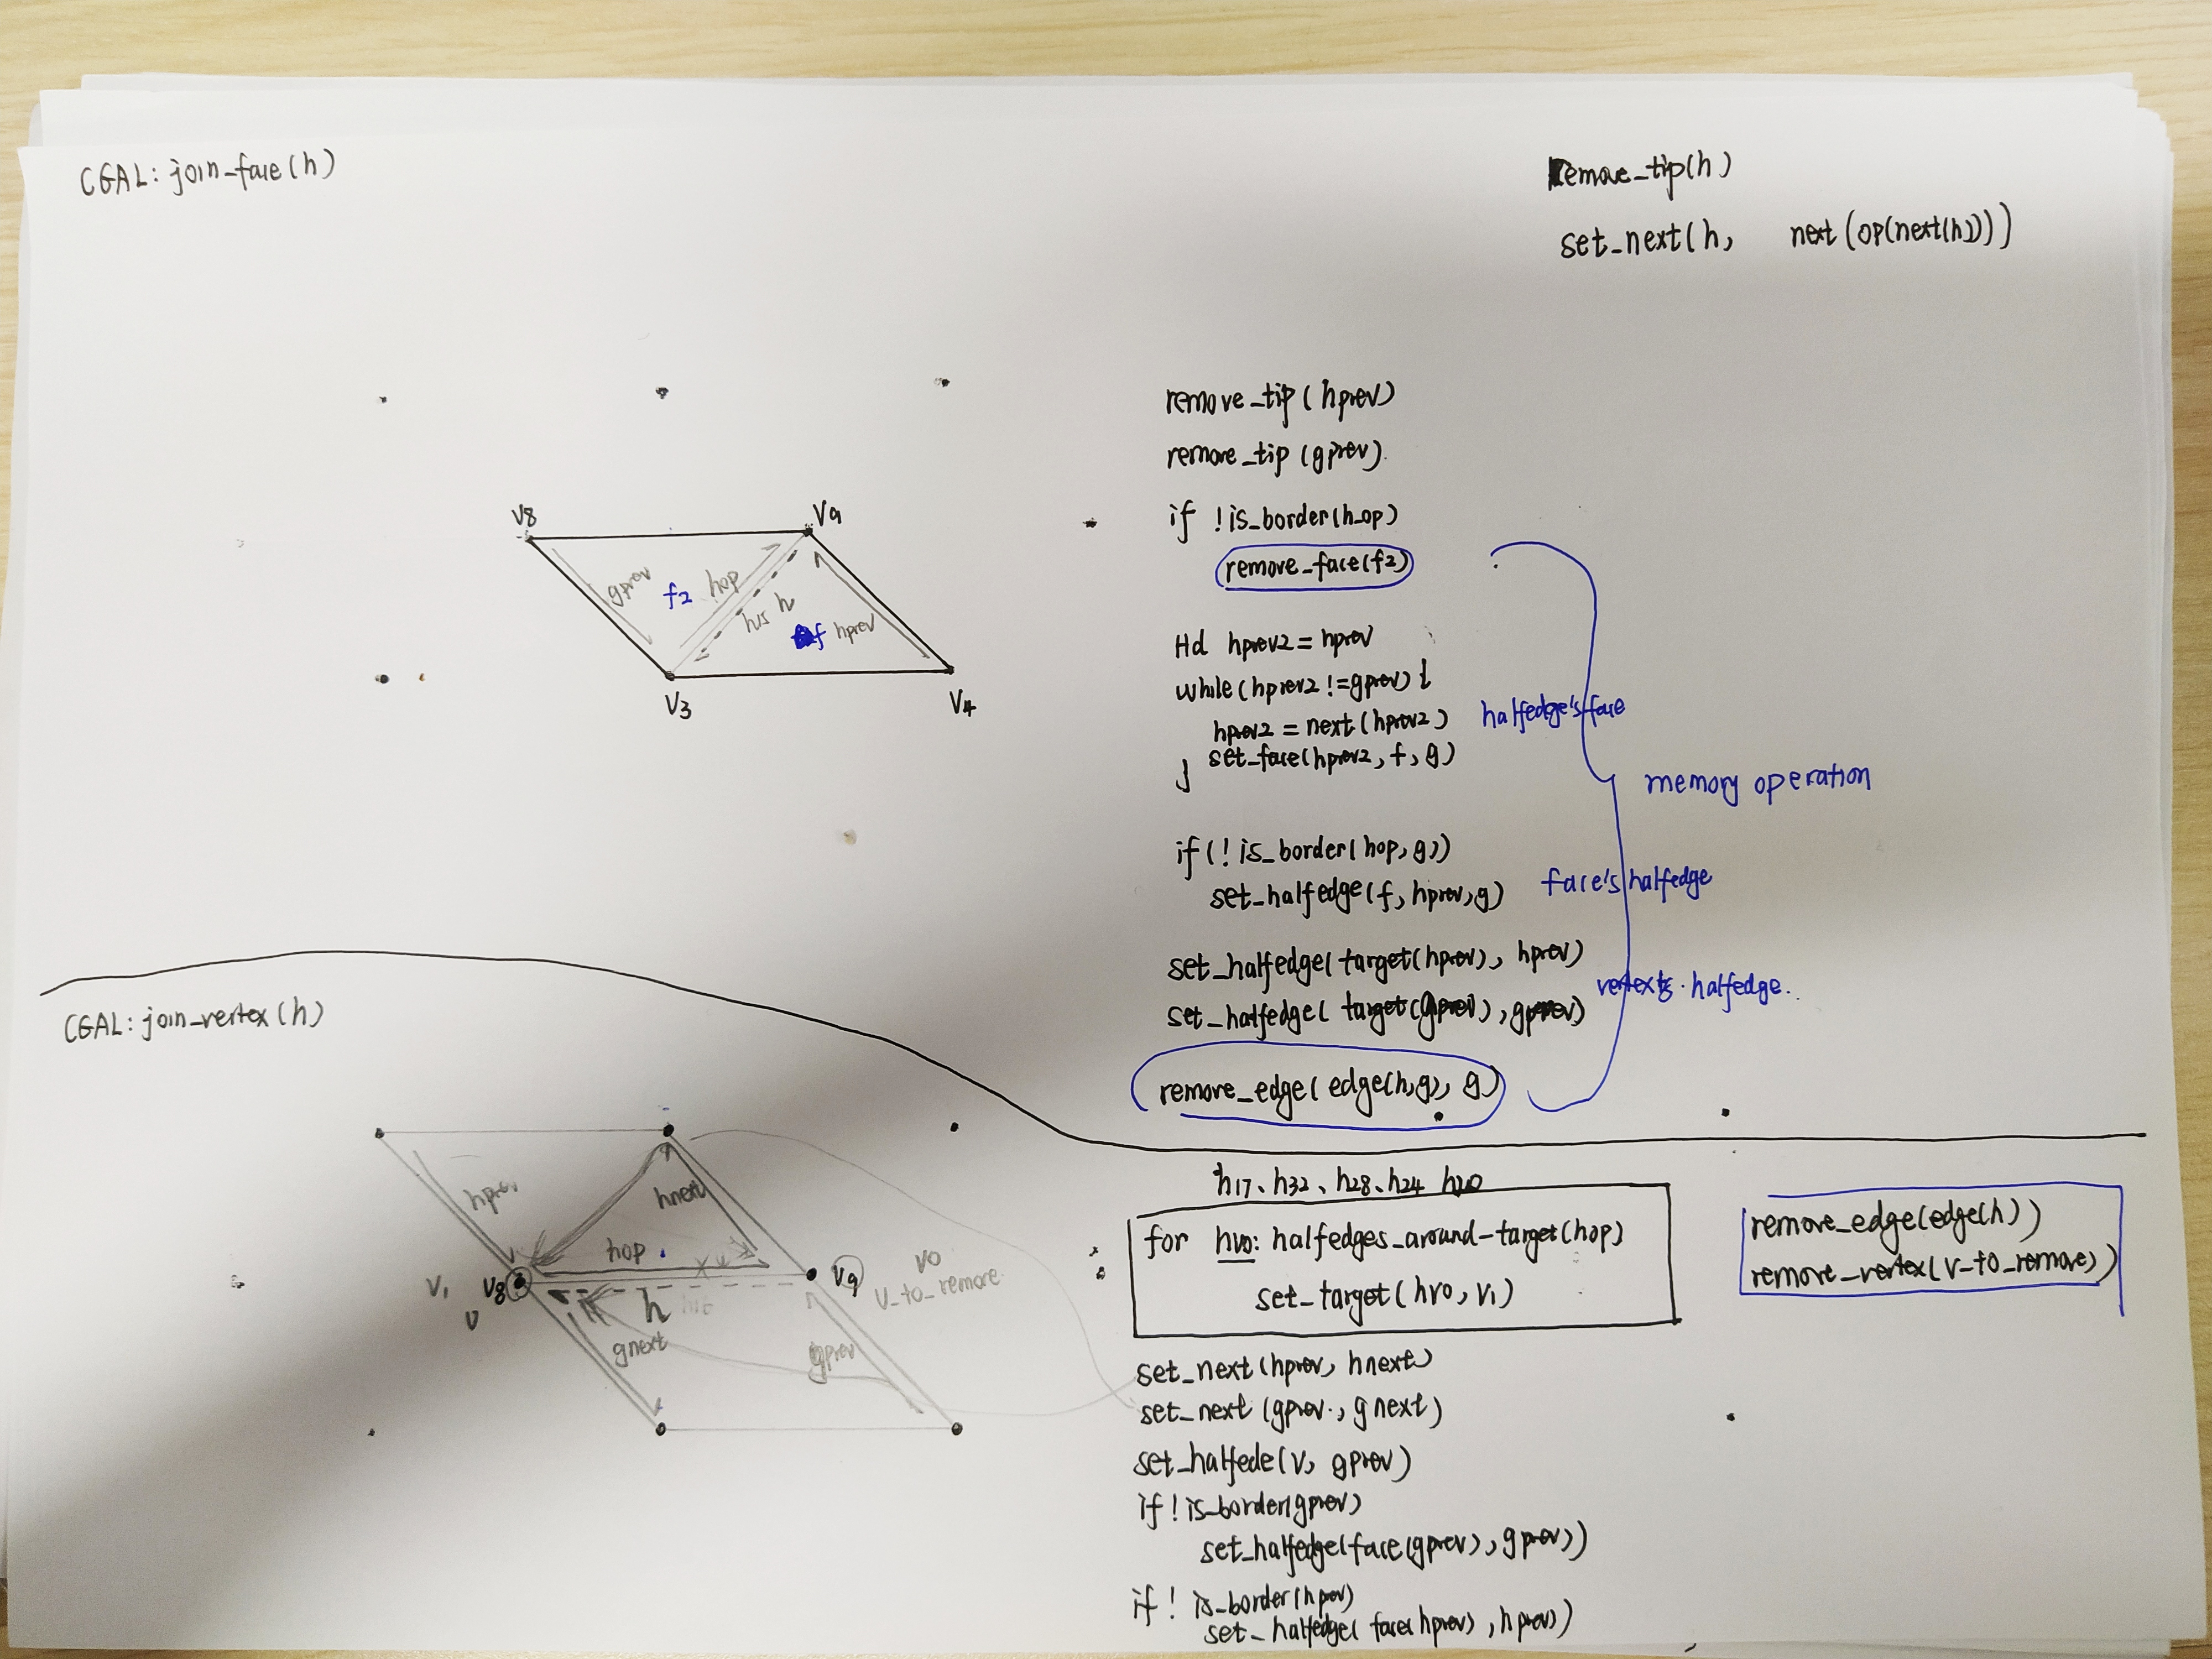 CGAL: join_face(h)
remove_tip(h)
set_next(h, next(op(next(h))))
remove_tip(hprev)
remove_tip(gprev).
if !is_border(h_op)
remove_face(f2)
Hd hprev2 = hprev
while(hprev2 != gprev) {
hprev2 = next(hprev2)
halfedge's face
} set_face(hprev2, f, g)
memory operation
if(! is_border(hop, g))
set_halfedge(f, hprev, g)
face's halfedge
set_halfedge(target(hprev), hprev)
vertex's halfedge.
set_halfedge(target(gprev), gprev)
remove_edge(edge(h,g), g)
V8
V9
gprev
f2
hop
h15
h
f
hprev
V3
V4
CGAL: join_vertex(h)
hprev
hnext
hop
V1
V8
V
h
V9
V0
V_to_remove
gnext
gprev
h17、h32、h28、h24 h20
for hv0: halfedges_around-target(hop)
set_target(hv0, v1)
remove_edge(edge(h))
remove_vertex(v-to_remove))
set_next(hprev, hnext)
set_next(gprev., gnext)
set_halfede(v, gprev)
if ! is_border(gprev)
set_halfedge(face(gprev), gprev))
if ! is_border(hprev)
set_halfedge(face(hprev), hprev))